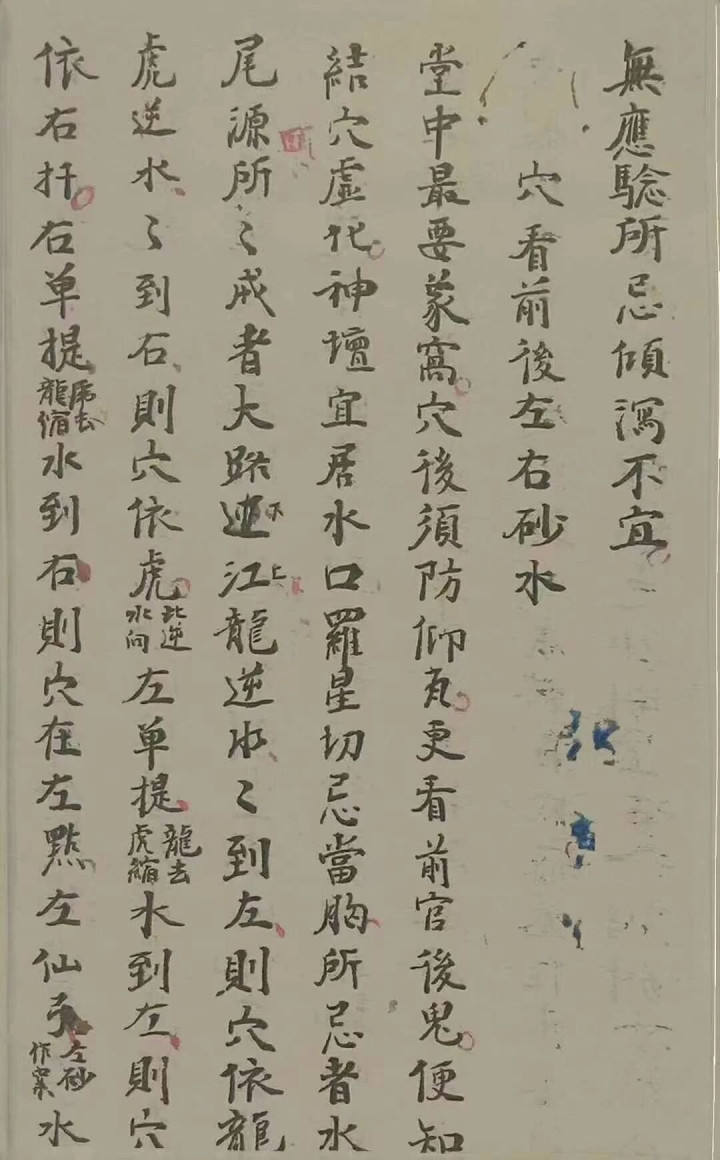 無應驗所忌傾瀉不宜
穴看前後左右砂水
堂中最要蒙窩穴後須防仰瓦更看前官後鬼便知
結穴虛花神壇宜居水口羅星切忌當胸所忌者水
尾源所〻戒者大路迎下江上龍逆水〻到左則穴依龍
虎逆水〻到右則穴依虎此逆水向左單提龍去虎縮水到左則穴
依右扦右單提虎去龍縮水到右則穴在左點左仙弓左砂作案水